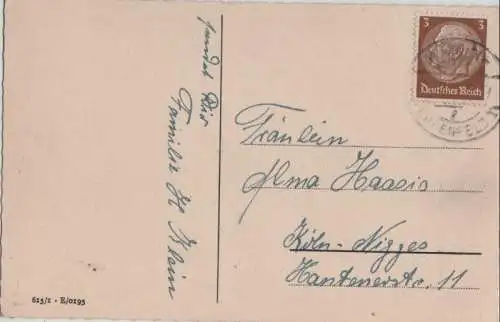 sendet Dir
Familie H Klein
3 3
Deutsches Reich
Fräulein
Alma Haasis
Köln-Nippes
Xantenerstr. 11
615/1 - E/0195